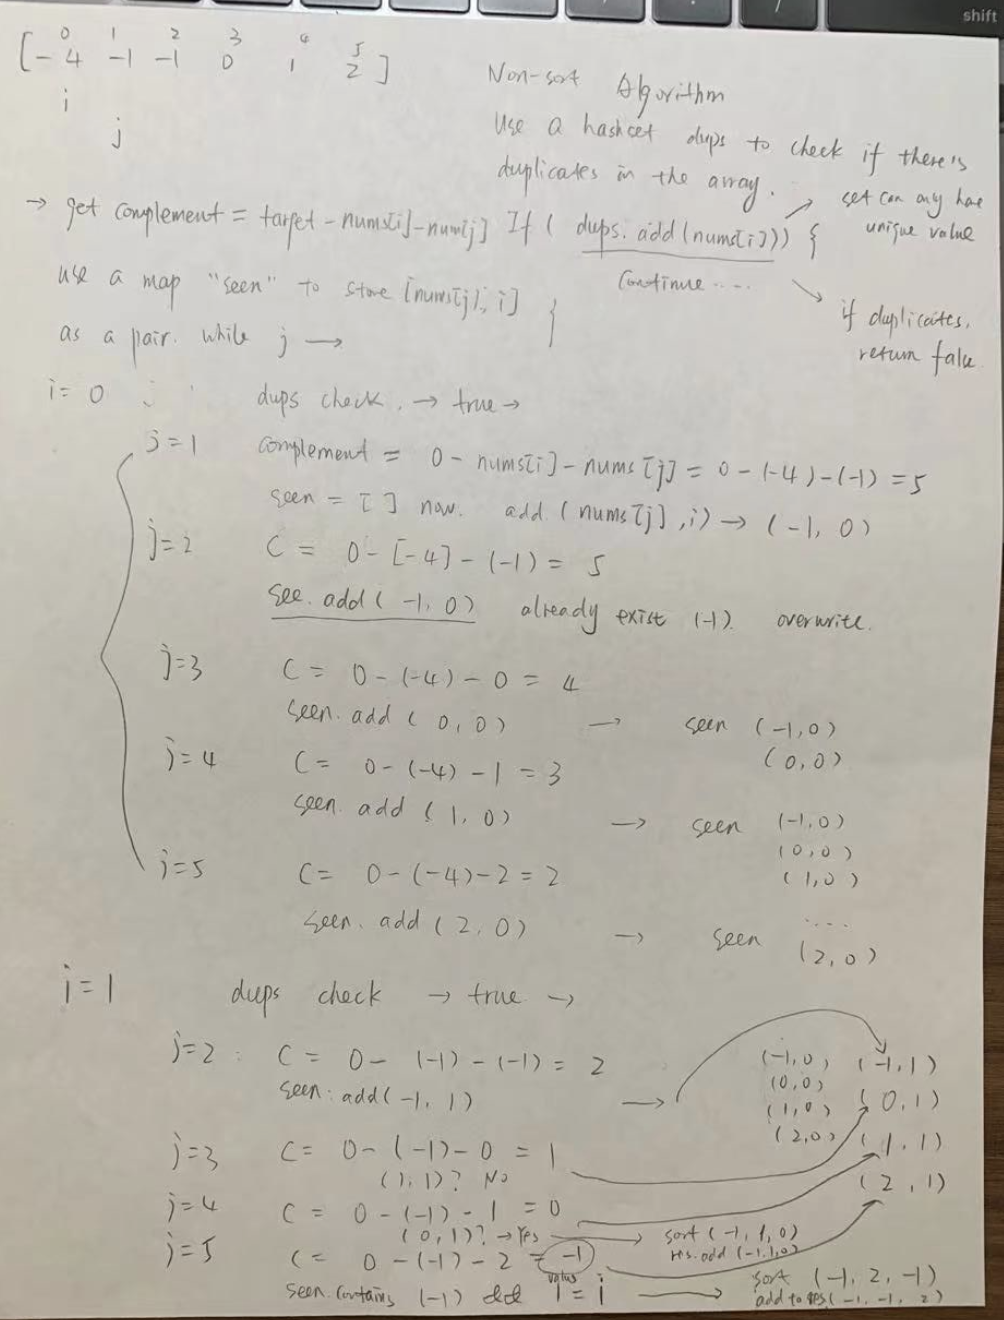 shift
0 1 2 3 4 5
[-4 -1 -1 0 1 2]
i
j
Non-sort Algorithm
Use a hashset dups to check if there's
duplicates in the array.
→ get complement = target - nums[i] - nums[j] If ( dups.add(nums[i])) {
set can only have
unique value
Continue ....
use a map "seen" to store [nums[j], i]
}
as a pair. while j →
if duplicates,
return false
i = 0 dups check. → true →
j=1 complement = 0 - nums[i] - nums[j] = 0 - (-4) - (-1) = 5
seen = [ ] now. add (nums[j], i) → (-1, 0)
j=2 C = 0 - [-4] - (-1) = 5
see. add( -1, 0) already exist (-1). overwrite.
j=3 C = 0 - (-4) - 0 = 4
seen. add ( 0, 0) → seen (-1,0)
(0,0)
j=4 C = 0 - (-4) - 1 = 3
seen. add ( 1, 0) → seen (-1,0)
(0,0)
(1,0)
j=5 C = 0 - (-4) - 2 = 2
seen. add ( 2, 0) → seen ....
(2,0)
i=1 dups check → true →
j=2 : C = 0 - (-1) - (-1) = 2 (-1,0) (-1,1)
seen: add(-1, 1) → (0,0) (0,1)
(1,0) (1,1)
(2,0) (2,1)
j=3 C = 0 - (-1) - 0 = 1
(1,1)? No
j=4 C = 0 - (-1) - 1 = 0
(0,1)? → Yes → sort (-1, 1, 0)
res.add (-1,1,0)
j=5 C = 0 - (-1) - 2 = -1
seen. contains (-1) value i = i → sort (-1, 2, -1)
add to res (-1, -1, 2)